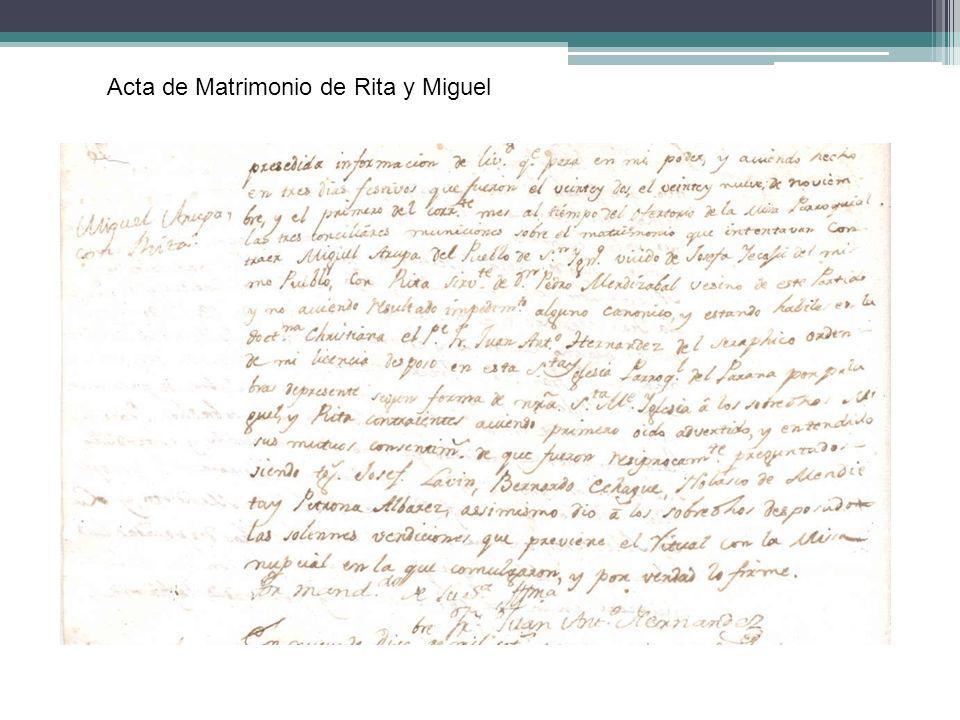 Acta de Matrimonio de Rita y Miguel
presedida informacion de liv.ᵈ q.ᵉ pera en mi poder, y aviendo hecho
en tres dias festivos que fueron el veinte y dos, el veinte y nueve, de noviem
bre, y el primero del corr.ᵗᵉ mes al tiempo del ofertorio de la Misa Parroquial
Miguel Arupa,
con Rita
las tres conciliares municiones sobre el matrimonio que intentavan Con
traer Miguel Arupa del Pueblo de S.ⁿ Ygn.º viudo de Josefa del mis
mo Pueblo, con Rita sirv.ᵗᵉ de d.ⁿ Pedro Mendizabal vesino de este Partido
y no aviendo resultado impedim.ᵗº alguno canonico, y estando habiles en la
doct.ⁿᵃ Christiana el P.ᵉ fr. Juan Ant.º Hernandez del seraphico orden
de mi licencia desposo en esta S.ᵗᵃ Yglesia Parroq.ˡ del Parana por pala
bras de presente segun forma de nrã S.ᵗᵃ M.ᵉ Yglesia â los sobredhos Mi
guel, y Rita contraientes aviendo primero oido advertido, y entendido
sus mutuos consentim.ˢ de que fueron resiprocam.ᵗᵉ preguntados
siendo Josef Lavin, Bernardo Echague, de Mendie
ta y Petrona Albarez, assimismo dio â los sobredhos desposados
las solennes vendiciones que previene el Ritual con la Misa
nupcial en la que comulgaron, y por verdad lo firme.
Por mand.ᵈº de su S.ᵃ Yllma
fr. Juan Ant.º Hernandez